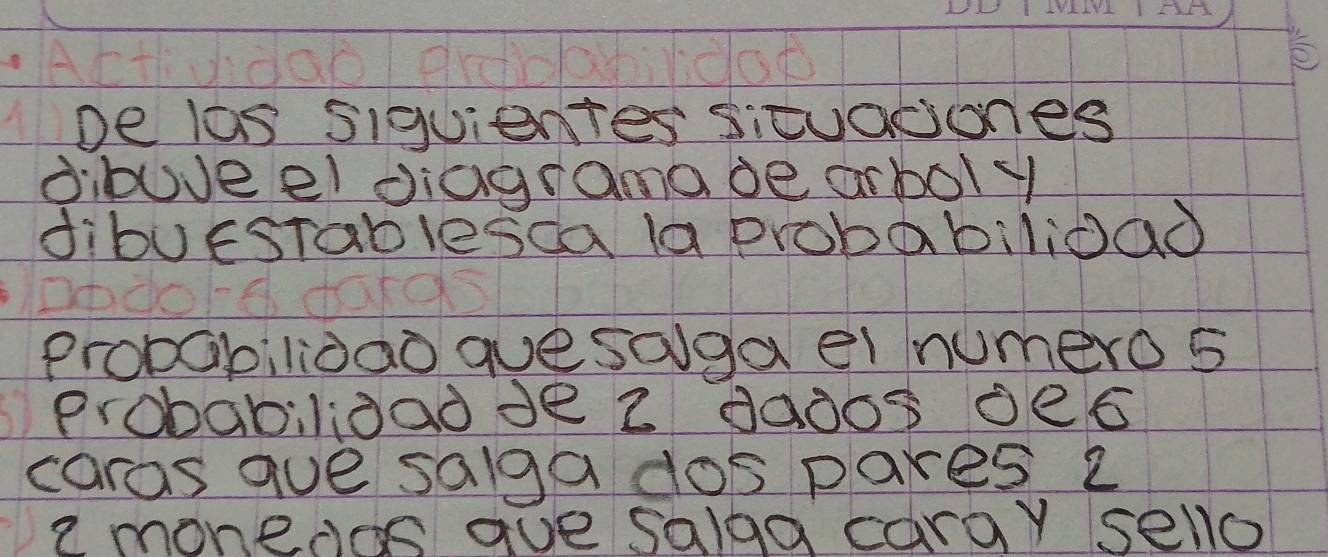 DD | MM | AA
• Actividad probabilidad
1) De las siguientes situaciones
dibuje el diagrama de arbol y
dibu Establesca la probabilidad
•) Dado - 6 caras
probabilidad que salga el numero 5
3) probabilidad de 2 dados de 6
caras que salga dos pares 2
2 monedas que salga cara y sello